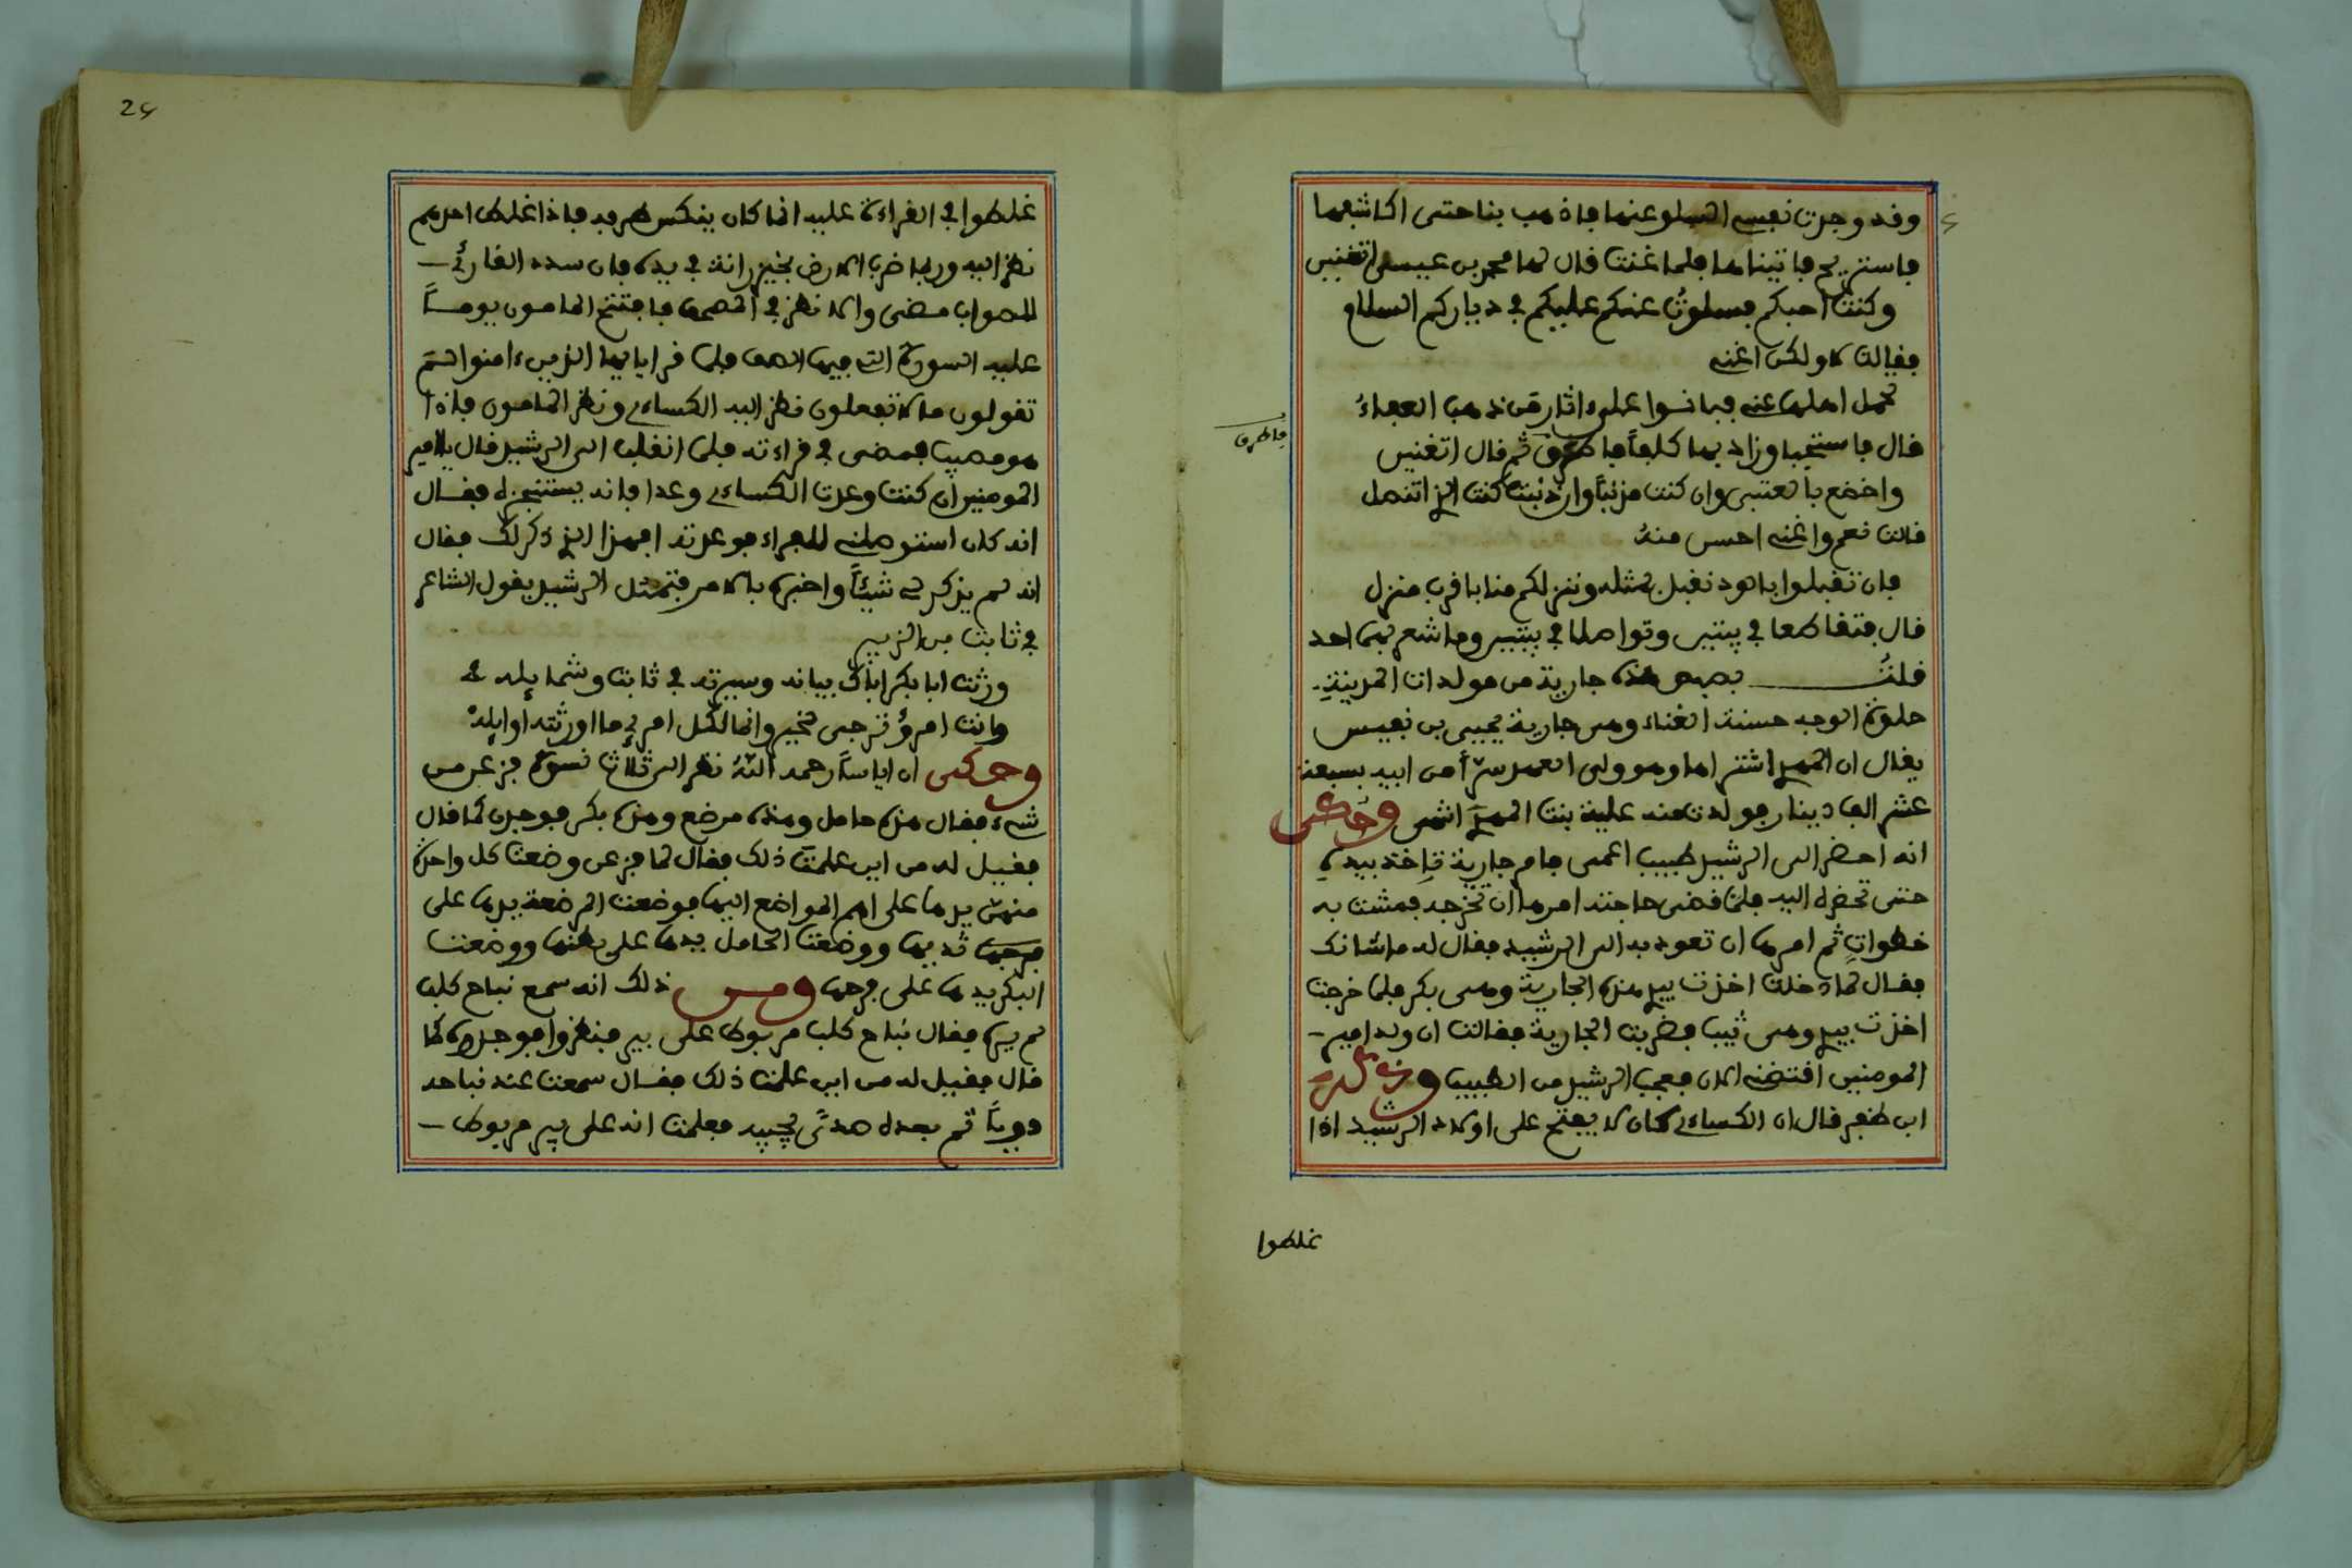 وقد وجدت نفسي السلو عنها فاذهب بنا حتى اكاشفها
فاستريح فاتيناها فلما غنت قال لها محمد بن عيسى اتغنين
وكنت احبكم فسلوت عنكم عليكم في دياركم السلام
فقالت لا ولكن اغني
تحمل اهلها عني فبانوا على ءاثار من ذهب العفاء
قال فاستحيا وزاد بها كلفا فاطرق ثم قال اتغنين
فاطرق
واخضع بالعتبى وان كنت مذنبا وان اذنبت كنت الذي اتنصل
قالت نعم واغني احسن منه
فان تقبلوا بالود نقبل بمثله وننزلكم منا باقرب منزل
قال فتقاطعا في بيتين وتواصلا في بيتين وما شعر بهما احد
قلت بصبص هذه جارية من مولدات المدينة
حلوة الوجه حسنة الغناء وهي جارية يحيى بن نفيس
يقال ان المهدي اشتراها وهو ولي العهد سرا من ابيه بسبعة
عشر الف دينار فولدت منه علية بنت المهدي انتهى وحكى
انه احضر الى الرشيد طبيب اعمى فامر جارية تاخذ بيده
حتى تحضره اليه فلما قضى حاجته امرها ان تخرجه فمشت به
خطوات ثم امرها ان تعود به الى الرشيد فقال له ما شانك
فقال لما دخلت اخذت بيدي هذه الجارية وهي بكر فلما خرجت
اخذت بيدي وهي ثيب فضربت الجارية فقالت ان ولد امير
المومنين افتضني الان فعجب الرشيد من الطبيب
ابن ظفر قال ان الكساءي كان لا يفتح على اولاد الرشيد اذا
غلطوا
24
غلطوا في القراءة عليه انما كان ينكس طرفه فاذا غلط احدهم
نظر اليه وربما ضرب الارض بخيزرانة في يده فان سدده القارئ
للصواب مضى والا نظر في المصحف فافتتح المامون يوما
عليه السورة التي فيها الصف فلما قرا يايها الذين ءامنوا لم
تقولون ما لا تفعلون نظر اليه الكساءي ونظر المامون فاذا
هو مصيب فمضى في قراءته فلما انقلب الى الرشيد قال يا امير
المومنين ان كنت وعدت الكساءي وعدا فانه يستنجزه فقال
انه كان استوصلني للقراء فوعدته افهذا الذي ذكر لك فقال
انه لم يذكر لي شيئا واخبره بالامر فتمثل الرشيد بقول الشاعر
في ثابت بن الزبير
ورثت ابا بكر اباك بيانه وسيرته في ثابت وشمايله
وانت امرؤ ترجى لخير وانما لكل امرئ ما اورثته اوايله
وحكى ان اياسا رحمه الله نظر الى ثلاث نسوة فزعن من
شيء فقال هذه حامل وهذه مرضع وهذه بكر فوجدن كما قال
فقيل له من اين علمت ذلك فقال لما فزعن وضعت كل واحدة
منهن يدها على اهم المواضع اليها فوضعت المرضعة يدها على
فرجها ثديها ووضعت الحامل يدها على بطنها ووضعت
البكر يدها على فرجها ومن ذلك انه سمع نباح كلب
لم يره فقال نباح كلب مربوط على بير فنظروا فوجدوه كما
قال فقيل له من اين علمت ذلك فقال سمعت عند نباحه
دويا ثم بعده صدى يجيبه فعلمت انه على بير مربوط